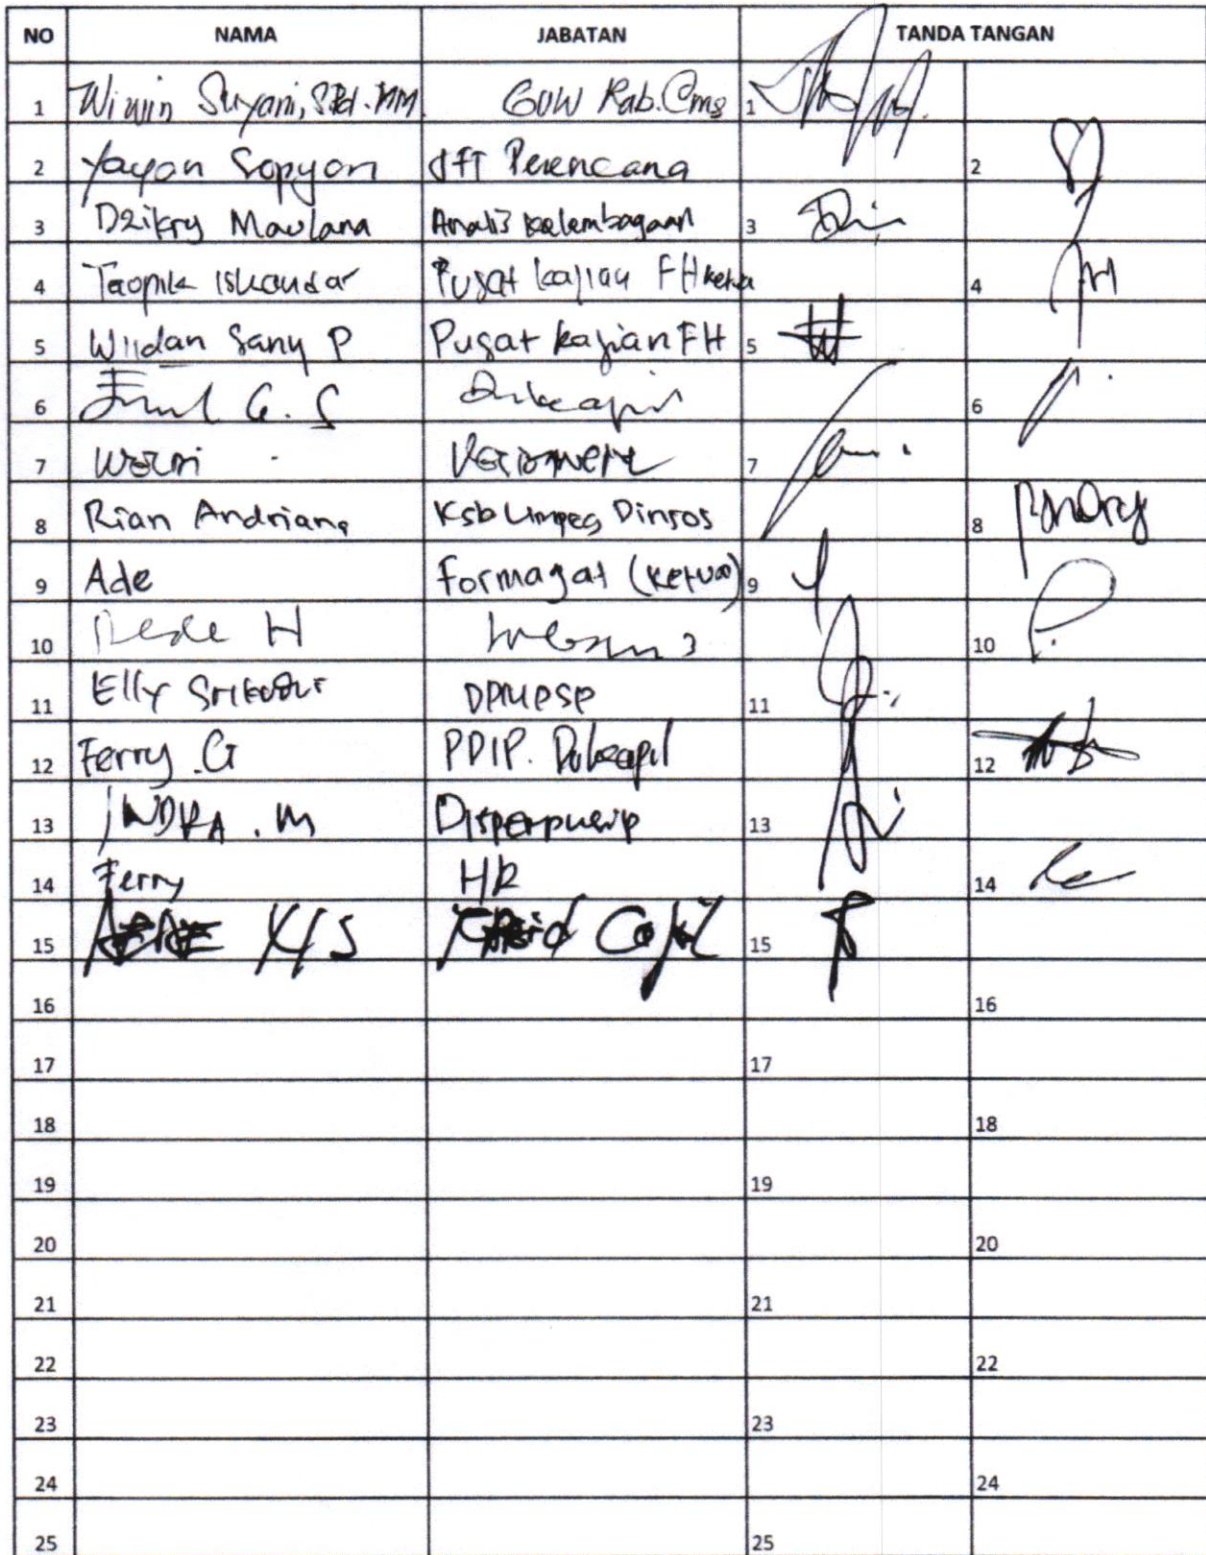 NO NAMA JABATAN TANDA TANGAN
1 Wiwin Suryani, S.Pd.MM. GOW Kab. Cms 1
2 Yayan Sopyan JFT Perencana 2
3 Dzikry Maulana Analis Kelembagaan 3
4 Taopik Iskandar Pusat kajian FH ketua 4
5 Wildan Sany P Pusat kajian FH 5
6 G. S 6
7 7
8 Rian Andriana Ksb Umpeg Dinsos 8
9 Ade Formagat (Ketua) 9
10 Dede H 10
11 Elly DPMPSP 11
12 Ferry .G PDIP. Dukcapil 12
13 INDRA . M Disperpusip 13
14 Ferry HR 14
15 15
16 16
17 17
18 18
19 19
20 20
21 21
22 22
23 23
24 24
25 25